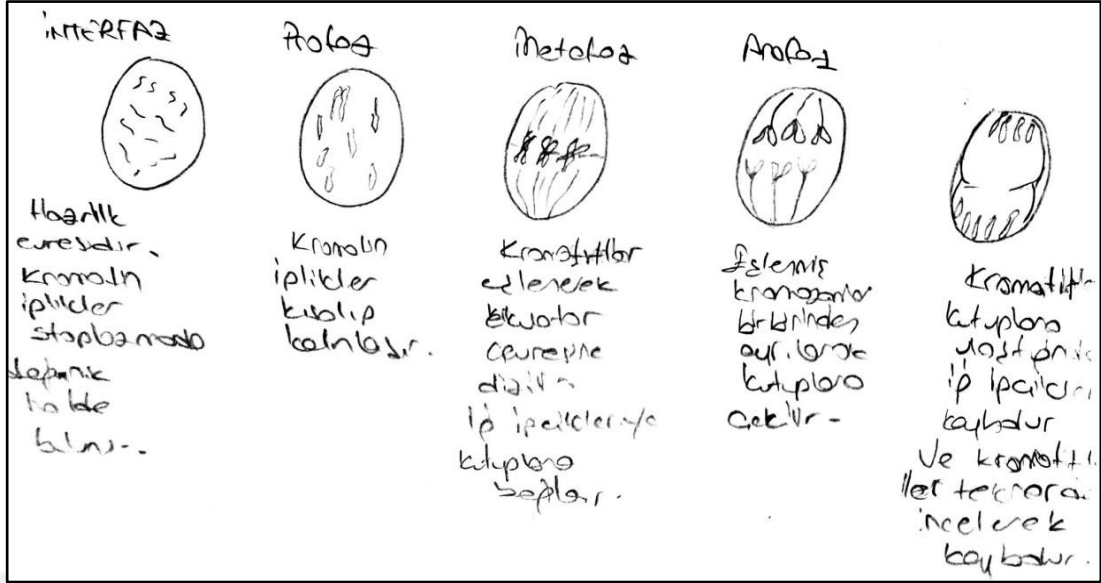 İNTERFAZ
Hazırlık
evresidir.
Kromatin
iplikler
stoplazmada
dağınık
halde
bulunur.
Profaz
Kromatin
iplikler
kısalıp
kalınlaşır.
Metafaz
Kromatitler
eşlenerek
ekvator
çevresine
dizilir
iğ ipçikleriyle
kutuplara
bağlanır.
Anafaz
Eşlenmiş
kromozomlar
birbirinden
ayrılarak
kutuplara
çekilir.
Kromatitl
kutuplara
iğ ipçikleri
kaybolur
Ve kromatit
ler tekrar
incelerek
kaybolur.